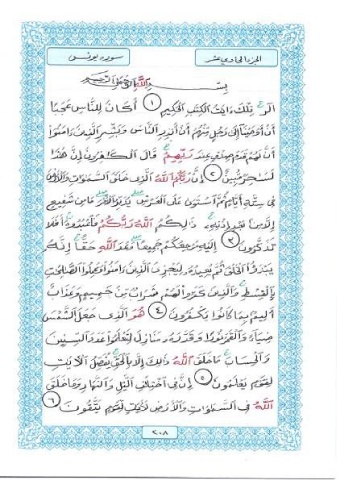 الجزء الحادي عشر
سورة يونس
بِسْمِ اللَّهِ الرَّحْمَٰنِ الرَّحِيمِ
الٓر تِلْكَ ءَايَٰتُ الْكِتَٰبِ الْحَكِيمِ ١ أَكَانَ لِلنَّاسِ عَجَبًا
أَنْ أَوْحَيْنَآ إِلَىٰ رَجُلٍ مِّنْهُمْ أَنْ أَنذِرِ النَّاسَ وَبَشِّرِ الَّذِينَ ءَامَنُوٓا
أَنَّ لَهُمْ قَدَمَ صِدْقٍ عِندَ رَبِّهِمْ قَالَ الْكَٰفِرُونَ إِنَّ هَٰذَا
لَسَٰحِرٌ مُّبِينٌ ٢ إِنَّ رَبَّكُمُ اللَّهُ الَّذِي خَلَقَ السَّمَٰوَٰتِ وَالْأَرْضَ
فِي سِتَّةِ أَيَّامٍ ثُمَّ اسْتَوَىٰ عَلَى الْعَرْشِ يُدَبِّرُ الْأَمْرَ مَا مِن شَفِيعٍ
إِلَّا مِنۢ بَعْدِ إِذْنِهِ ذَٰلِكُمُ اللَّهُ رَبُّكُمْ فَاعْبُدُوهُ أَفَلَا
تَذَكَّرُونَ ٣ إِلَيْهِ مَرْجِعُكُمْ جَمِيعًا وَعْدَ اللَّهِ حَقًّا إِنَّهُ
يَبْدَؤُا الْخَلْقَ ثُمَّ يُعِيدُهُ لِيَجْزِيَ الَّذِينَ ءَامَنُوا وَعَمِلُوا الصَّٰلِحَٰتِ
بِالْقِسْطِ وَالَّذِينَ كَفَرُوا لَهُمْ شَرَابٌ مِّنْ حَمِيمٍ وَعَذَابٌ
أَلِيمٌۢ بِمَا كَانُوا يَكْفُرُونَ ٤ هُوَ الَّذِي جَعَلَ الشَّمْسَ
ضِيَآءً وَالْقَمَرَ نُورًا وَقَدَّرَهُ مَنَازِلَ لِتَعْلَمُوا عَدَدَ السِّنِينَ
وَالْحِسَابَ مَا خَلَقَ اللَّهُ ذَٰلِكَ إِلَّا بِالْحَقِّ يُفَصِّلُ الْءَايَٰتِ
لِقَوْمٍ يَعْلَمُونَ ٥ إِنَّ فِي اخْتِلَٰفِ الَّيْلِ وَالنَّهَارِ وَمَا خَلَقَ
اللَّهُ فِي السَّمَٰوَٰتِ وَالْأَرْضِ لَءَايَٰتٍ لِّقَوْمٍ يَتَّقُونَ ٦
٢٠٨